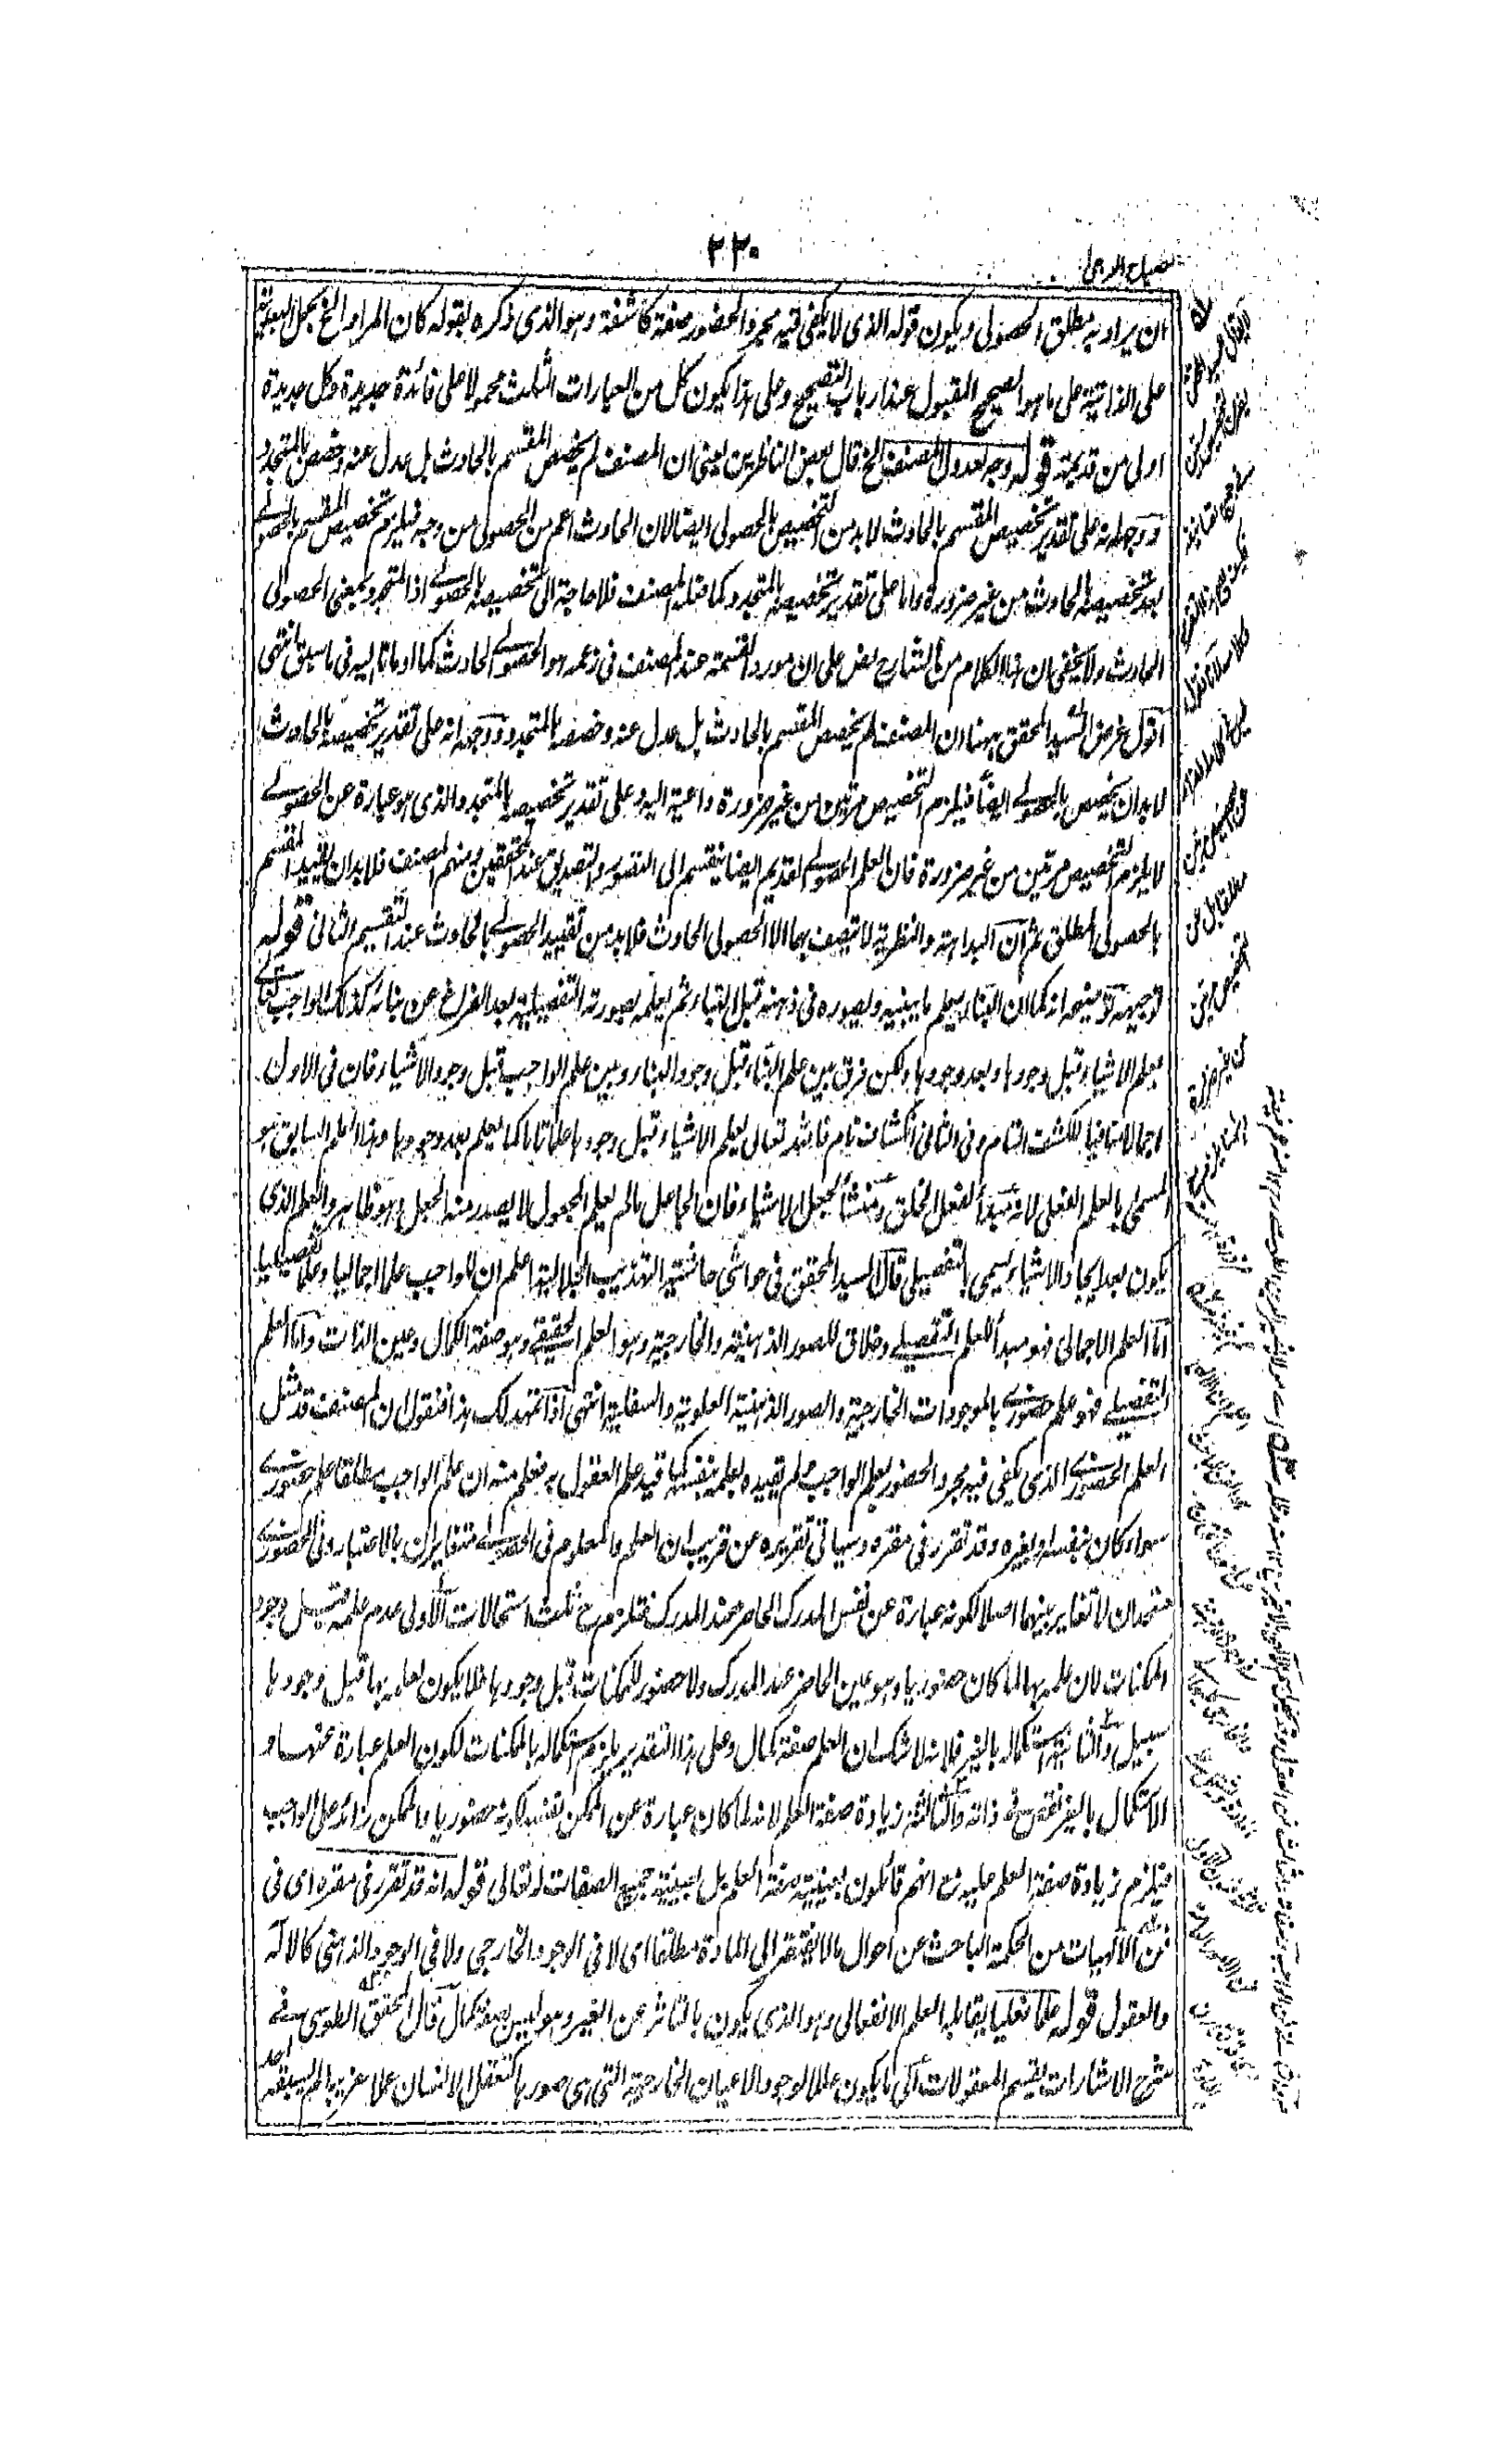 ٢٢٠
مصباح الدجى
ان يراد به مطلق الحصولى ويكون قوله الذى لا يكفى فيه مجرد الحضور صفة كاشفة وهو الذى ذكره بقوله كان المراد الخ بحمل البعدية
على الذاتية على ما هو الصحيح المقبول عند ارباب التصحيح وعلى هذا يكون كل من العبارات الثلث محمولا على فائدة جديدة وكل جديدة
اولى من قديمة قوله وجه لعدول المصنف الخ قال بعض الناظرين يعنى ان المصنف لم يخصص المقسم بالحادث بل عدل عنه وخصص بالمتجدد
ووجهه انه على تقدير تخصيص المقسم بالحادث لابد من التخصيص بالحصولى ايضا لان الحادث اعم من الحصولى من وجه فيلزم تخصيص المقسم بالحصولى
بعد تخصيصه بالحادث من غير ضرورة واما على تقدير تخصيصه بالمتجدد كما فعله المصنف فلا حاجة الى تخصيصه بالحصولى اذ المتجدد بمعنى الحصولى
الحادث ولا يخفى ان هذا الكلام من الشارح نص على ان مورد القسمة عند المصنف فى زعمه هو الحصولى الحادث كما اومانا اليه فى ما سبق انتهى
اقول غرض السيد المحقق ههنا ان المصنف لم يخصص المقسم بالحادث بل عدل عنه وخصصه بالمتجدد ووجهه انه على تقدير تخصيصه بالحادث
لابد ان يخصص بالحصولى ايضا فيلزم التخصيص مرتين من غير ضرورة داعية اليه وعلى تقدير تخصيصه بالمتجدد والذى هو عبارة عن الحصولى
لا يلزم التخصيص مرتين من غير ضرورة فان العلم الحصولى القديم ايضا ينقسم الى التصور والتصديق عند المحققين ومنهم المصنف فلابد ان يقيد المقسم
بالحصولى المطلق ثم ان البداهة والنظرية لا تتصف بها الا الحصولى الحادث فلابد من تقييد الحصولى بالحادث عند التقسيم الثانى قوله
توجيهه توضيحه انه كما ان البناء يعلم ما يبنيه ويصوره فى ذهنه قبل البناء ثم يعلمه بصورته التفصيلية بعد الفراغ عن بنائه كذلك الواجب تعالى
يعلم الاشياء قبل وجودها وبعد وجودها ولكن فرق بين علم البناء قبل وجود البناء وبين علم الواجب قبل وجود الاشياء فان فى الاول
اجمالا منافيا للكشف التام وفى الثانى انكشاف تام فالله تعالى يعلم الاشياء قبل وجودها علما تاما كما يعلم بعد وجودها وهذا العلم السابق هو
المسمى بالعلم الفعلى لانه مبدأ لفعل الخلق ومنشأ لجعل الاشياء فان الجاعل ما لم يعلم المجعول لا يصدر منه الجعل وهو ظاهر والعلم الذى
يكون بعد ايجاد الاشياء يسمى بالتفصيلى قال السيد المحقق فى حواشى حاشية التهذيب الجلالية اعلم ان للواجب علما اجماليا وعلما تفصيليا
اما العلم الاجمالى فهو مبدأ للعلم التفصيلى وخلاق للصور الذهنية والخارجية وهو العلم الحقيقى وهو صفة الكمال وعين الذات واما العلم
التفصيلى فهو علم حضورى بالموجودات الخارجية والصور الذهنية العلوية والسفلية انتهى اذا تمهد لك هذا فنقول ان المصنف قد مثل
العلم الحضورى الذى يكفى فيه مجرد الحضور بعلم الواجب ولم يقيده بعلمه بنفسه كما قيد علم العقول به فعلم منه ان علم الواجب مطلقا علم حضورى
سواء كان بنفسه او بغيره وقد تقرر فى مقره وسياتى تقريره عن قريب ان العلم والمعلوم فى الحصولى متغايران بالاعتبار وفى الحضورى
متحدان لا تغاير بينهما اصلا لكونه عبارة عن نفس المدرك الحاضر عند المدرك فتلزم ح ثلث استحالات الاولى عدم علمه قبل وجود
الممكنات لان علمه بها لما كان حضوريا وهو عين الحاضر عند المدرك ولا حضور للممكنات قبل وجودها فلا يكون لعلمه بها قبل وجودها
سبيل والثانية استكماله بالغير فلانه لا شك ان العلم صفة كمال وعلى هذا التقدير يلزم استكماله بالممكنات لكون العلم عبارة عنها و
الاستكمال بالغير نقص فى ذاته والثالثة زيادة صفة العلم لانه لما كان عبارة عن الممكن نفسه لكونه حضوريا والممكن زائد على الواجب
فيلزم زيادة صفة العلم عليه مع انهم قائلون بعينية صفة العلم بل بعينية جميع الصفات له تعالى قوله انه قد تقرر فى مقره اى فى
فن الالهيات من الحكمة الباحث عن احوال مالا يفتقر الى المادة مطلقا اى لا فى الوجود الخارجى ولا فى الوجود الذهنى كالاله
والعقول قوله علما فعليا يقابله العلم الانفعالى وهو الذى يكون بالتاثر عن الغير وهو ليس بصفة كمال قال المحقق الطوسى فى
شرح الاشارات يقسم المعقولات الى ما يكون عللا لوجود الاعيان الخارجية التى هى صورها كتعقل الانسان عملا غريبا لم يسبقه احد